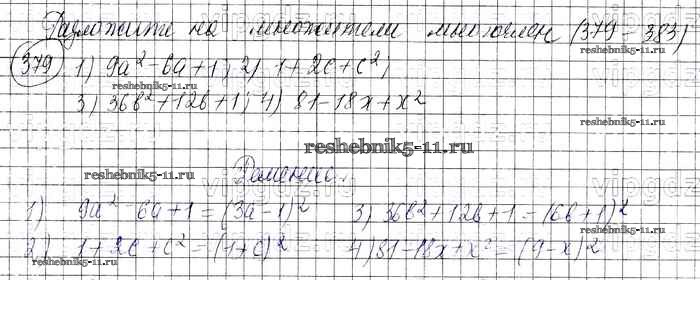 Разложите на множители многочлен (379 - 383)
379 1) 9a² - 6a + 1; 2) 1 + 2c + c²;
3) 36b² + 12b + 1; 4) 81 - 18x + x²
reshebnik5-11.ru
reshebnik5-11.ru
reshebnik5-11.ru
Решение.
1) 9a² - 6a + 1 = (3a - 1)² 3) 36b² + 12b + 1 = (6b + 1)²
reshebnik5-11.ru
2) 1 + 2c + c² = (1 + c)² 4) 81 - 18x + x² = (9 - x)²
reshebnik5-11.ru